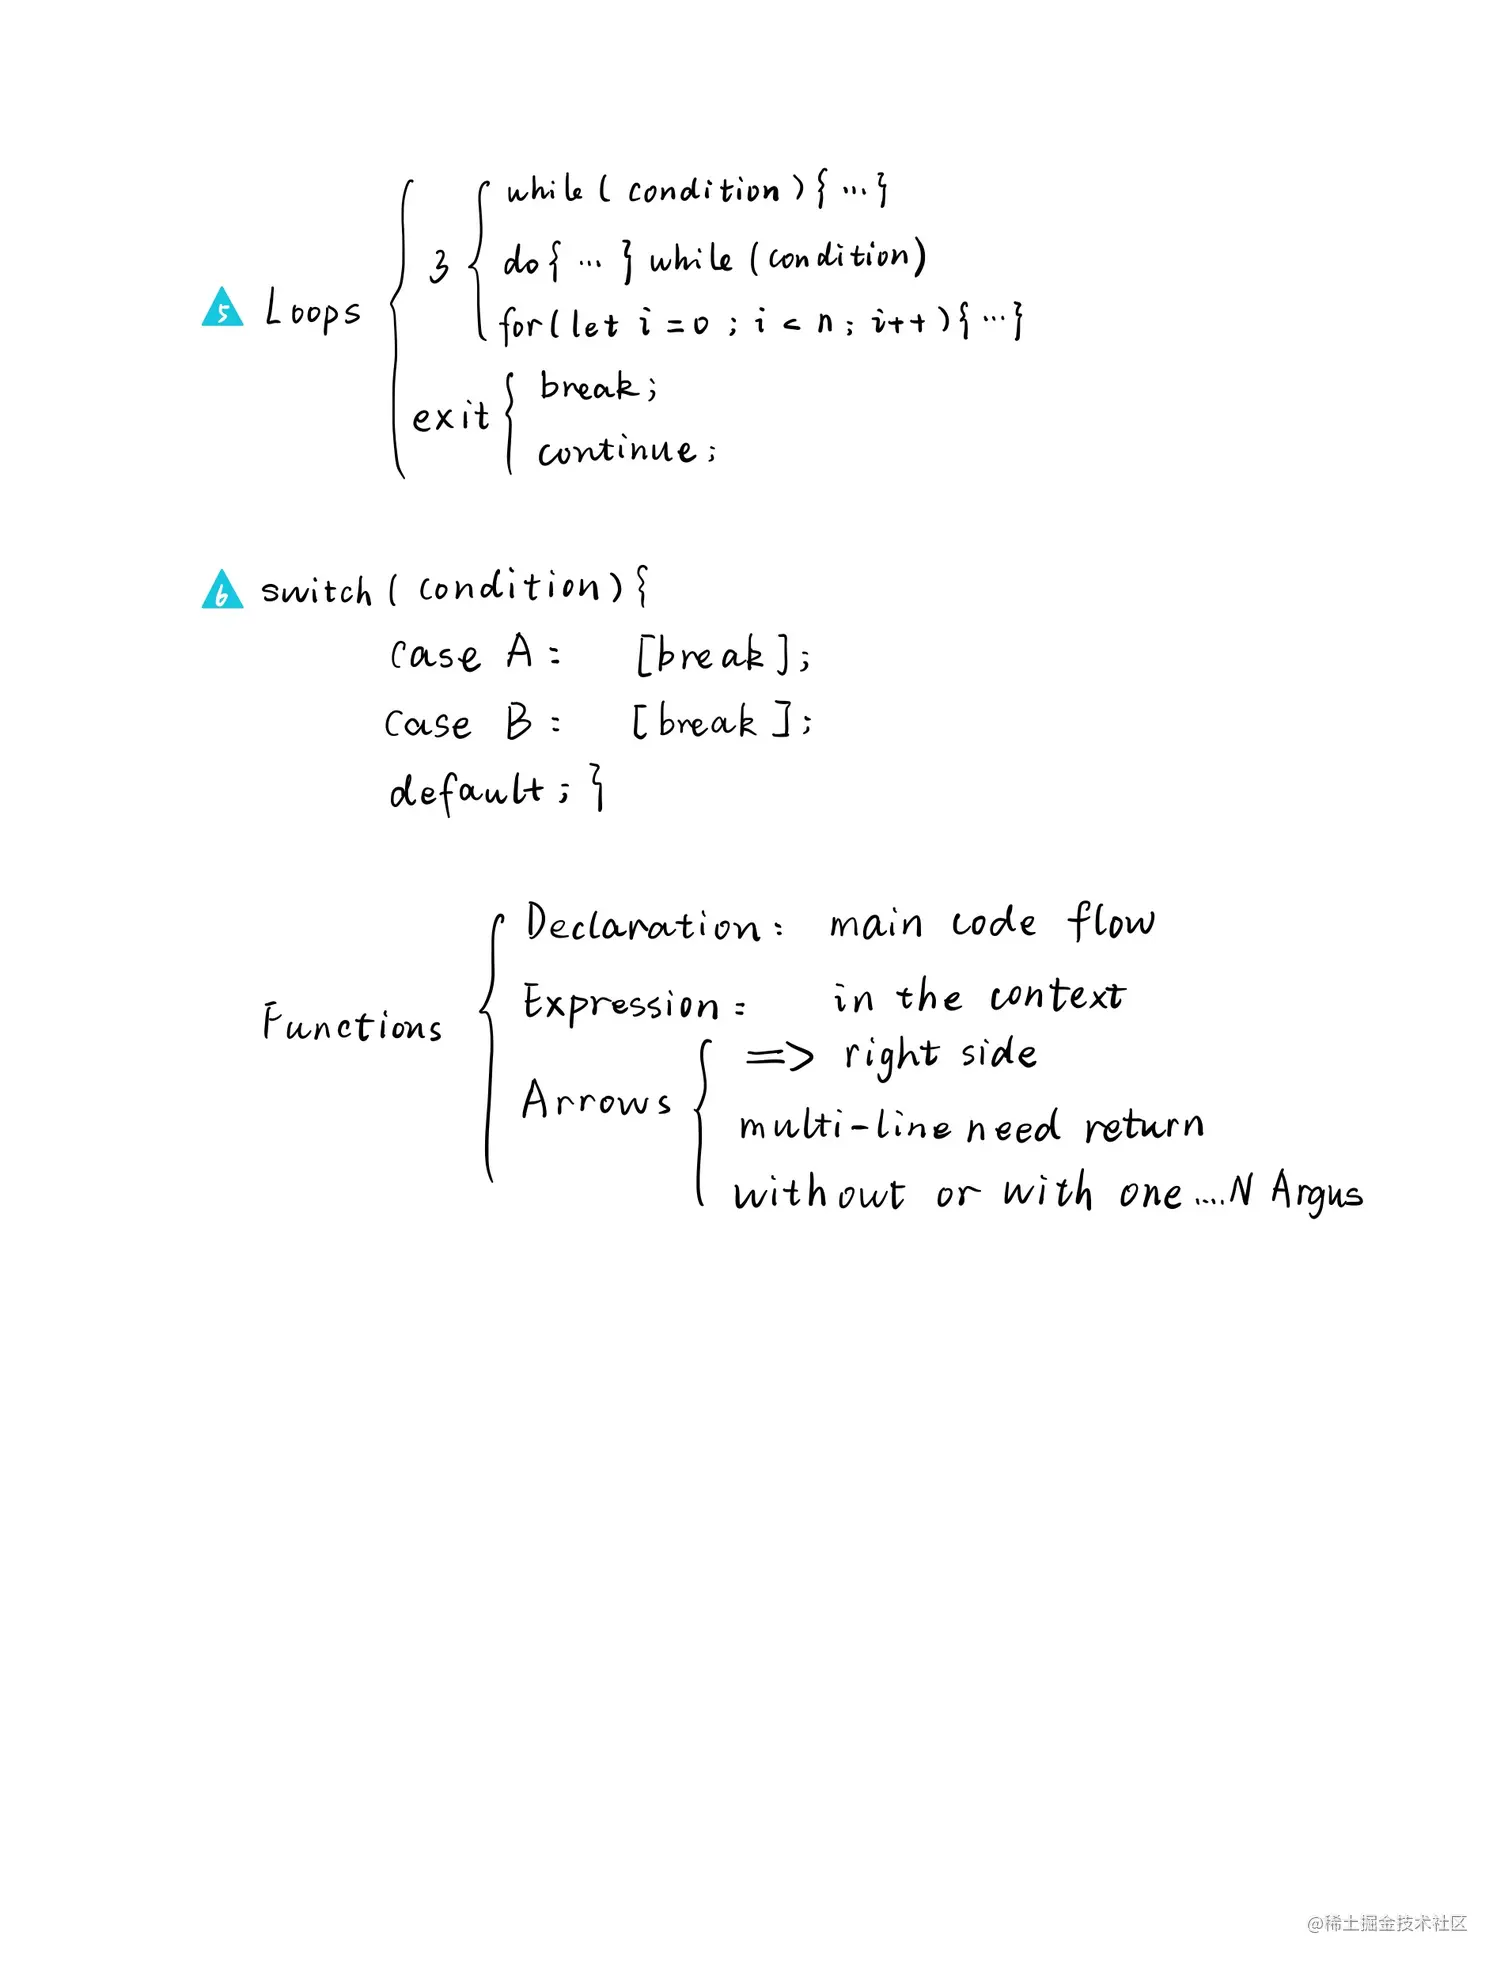 while(condition){...}
3 do{...}while(condition)
5 Loops
for(let i=0;i<n;i++){...}
break;
exit
continue;
6 switch(condition){
case A: [break];
case B: [break];
default;}
Declaration: main code flow
Expression: in the context
Functions
=> right side
Arrows
multi-line need return
without or with one....N Argus
@稀土掘金技术社区